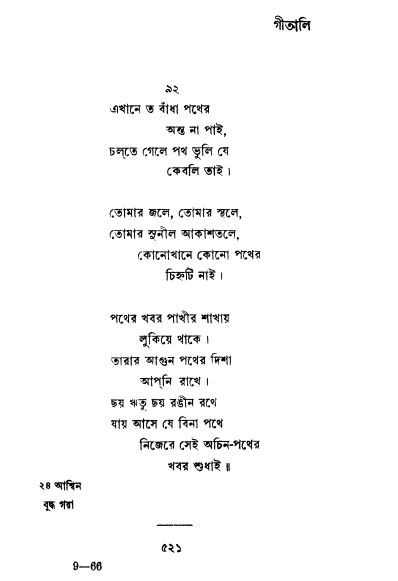 গীতালি
৯২
এখানে ত বাঁধা পথের
অন্ত না পাই,
চল্‌তে গেলে পথ ভুলি যে
কেবলি তাই।
তোমার জলে, তোমার স্থলে,
তোমার সুনীল আকাশতলে,
কোনোখানে কোনো পথের
চিহ্নটি নাই।
পথের খবর পাখীর শাখায়
লুকিয়ে থাকে।
তারার আগুন পথের দিশা
আপ্‌নি রাখে।
ছয় ঋতু ছয় রঙীন রথে
যায় আসে যে বিনা পথে
নিজেরে সেই অচিন-পথের
খবর শুধাই॥
২৪ আশ্বিন
বুদ্ধ গয়া
৫২১
9—66